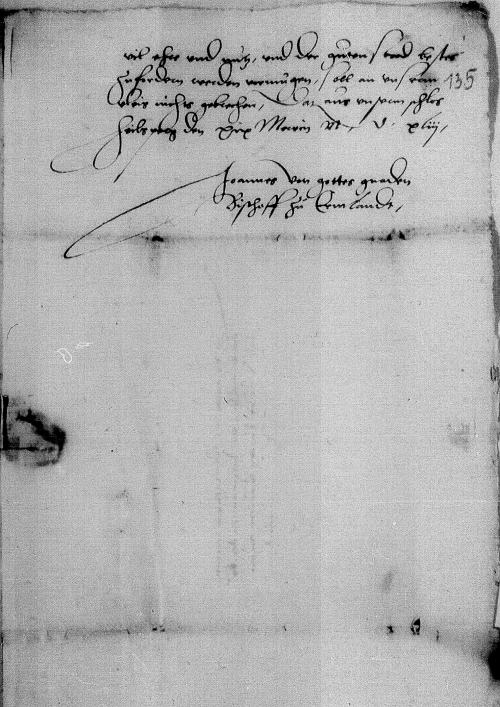 vil ehre und nutz, und der guten stend bestes
zufordern werden vermugen, soll an uns kein 135
vleis nichts gebrechen, Dat. aus unserm schlos
heilsperg den xix Marcii M D xliii,
Joannes von gottes gnaden
Bischoff zu Ermlandt,